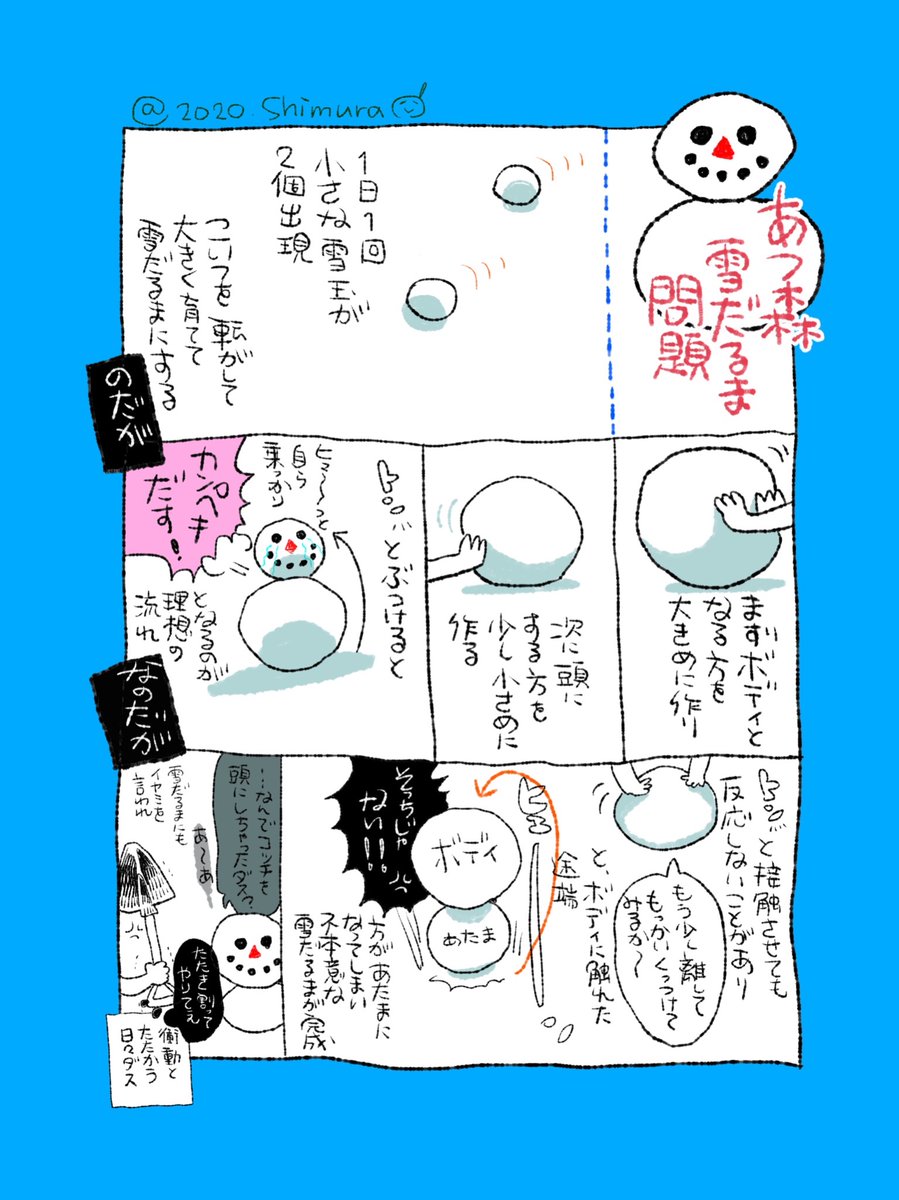 @2020.Shimura
あつ森
雪だるま
問題
1日1回
小さな雪玉が
2個出現
こいつを転がして
大きく育てて
雪だるまにする
のだが
まずボディと
なる方を
大きめに作り
次に頭に
する方を
少し小さめに
作る
トンッとぶつけると
ヒュ〜〜〜っと
自ら
乗っかり
カンペキ
だす!
となるのが
理想の
流れ
なのだが
トンッと接触させても
反応しないことがあり
もう少し離して
もっかいくっつけて
みるか〜
と、ボディに触れた
途端
ヒュ
ボディ
あたま
そっちじゃ
ない!!!
方があたまに
なってしまい
不本意な
雪だるまが完成
…なんでコッチを
頭にしちゃったダス?
あ〜あ
雪だるまにも
イヤミを
言われ
たたき割って
やりてえ
衝動と
たたかう
日々ダス